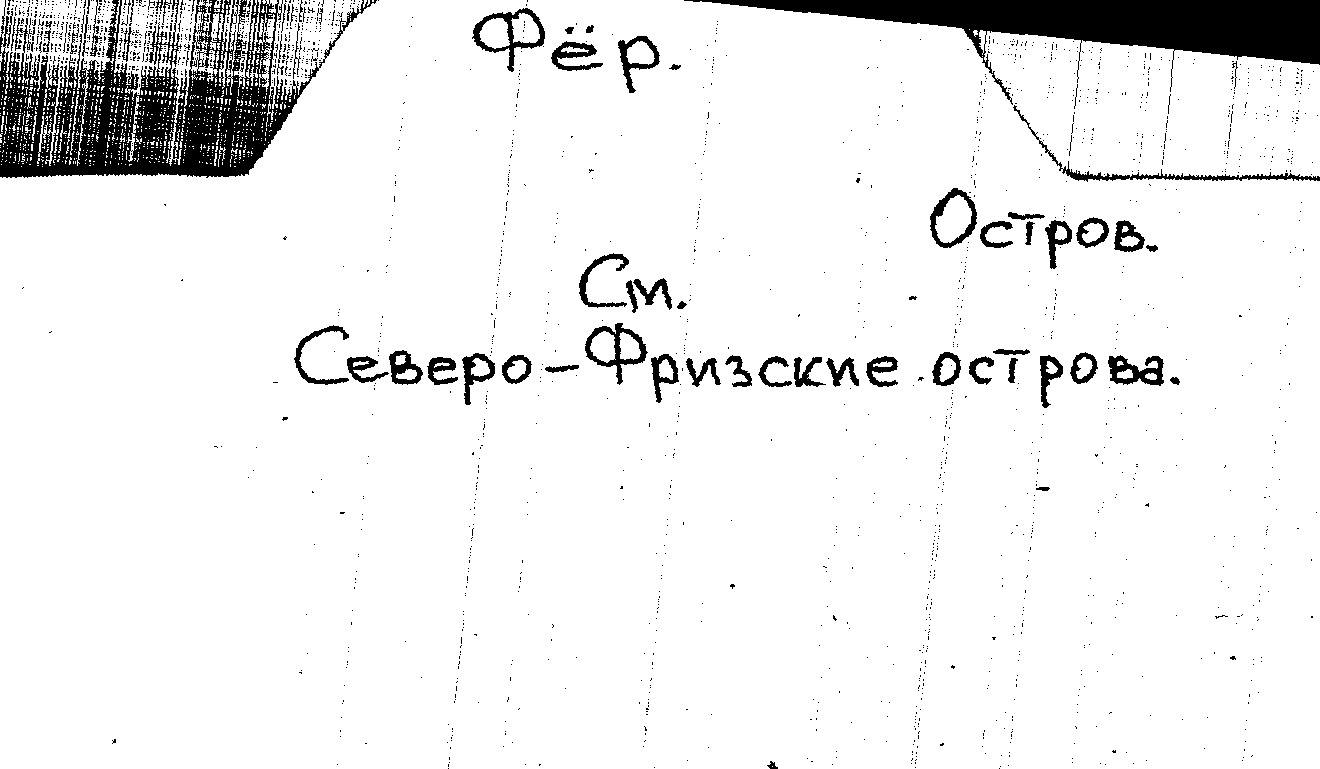 Фёр.
Остров.
См.
Северо-Фризские острова.